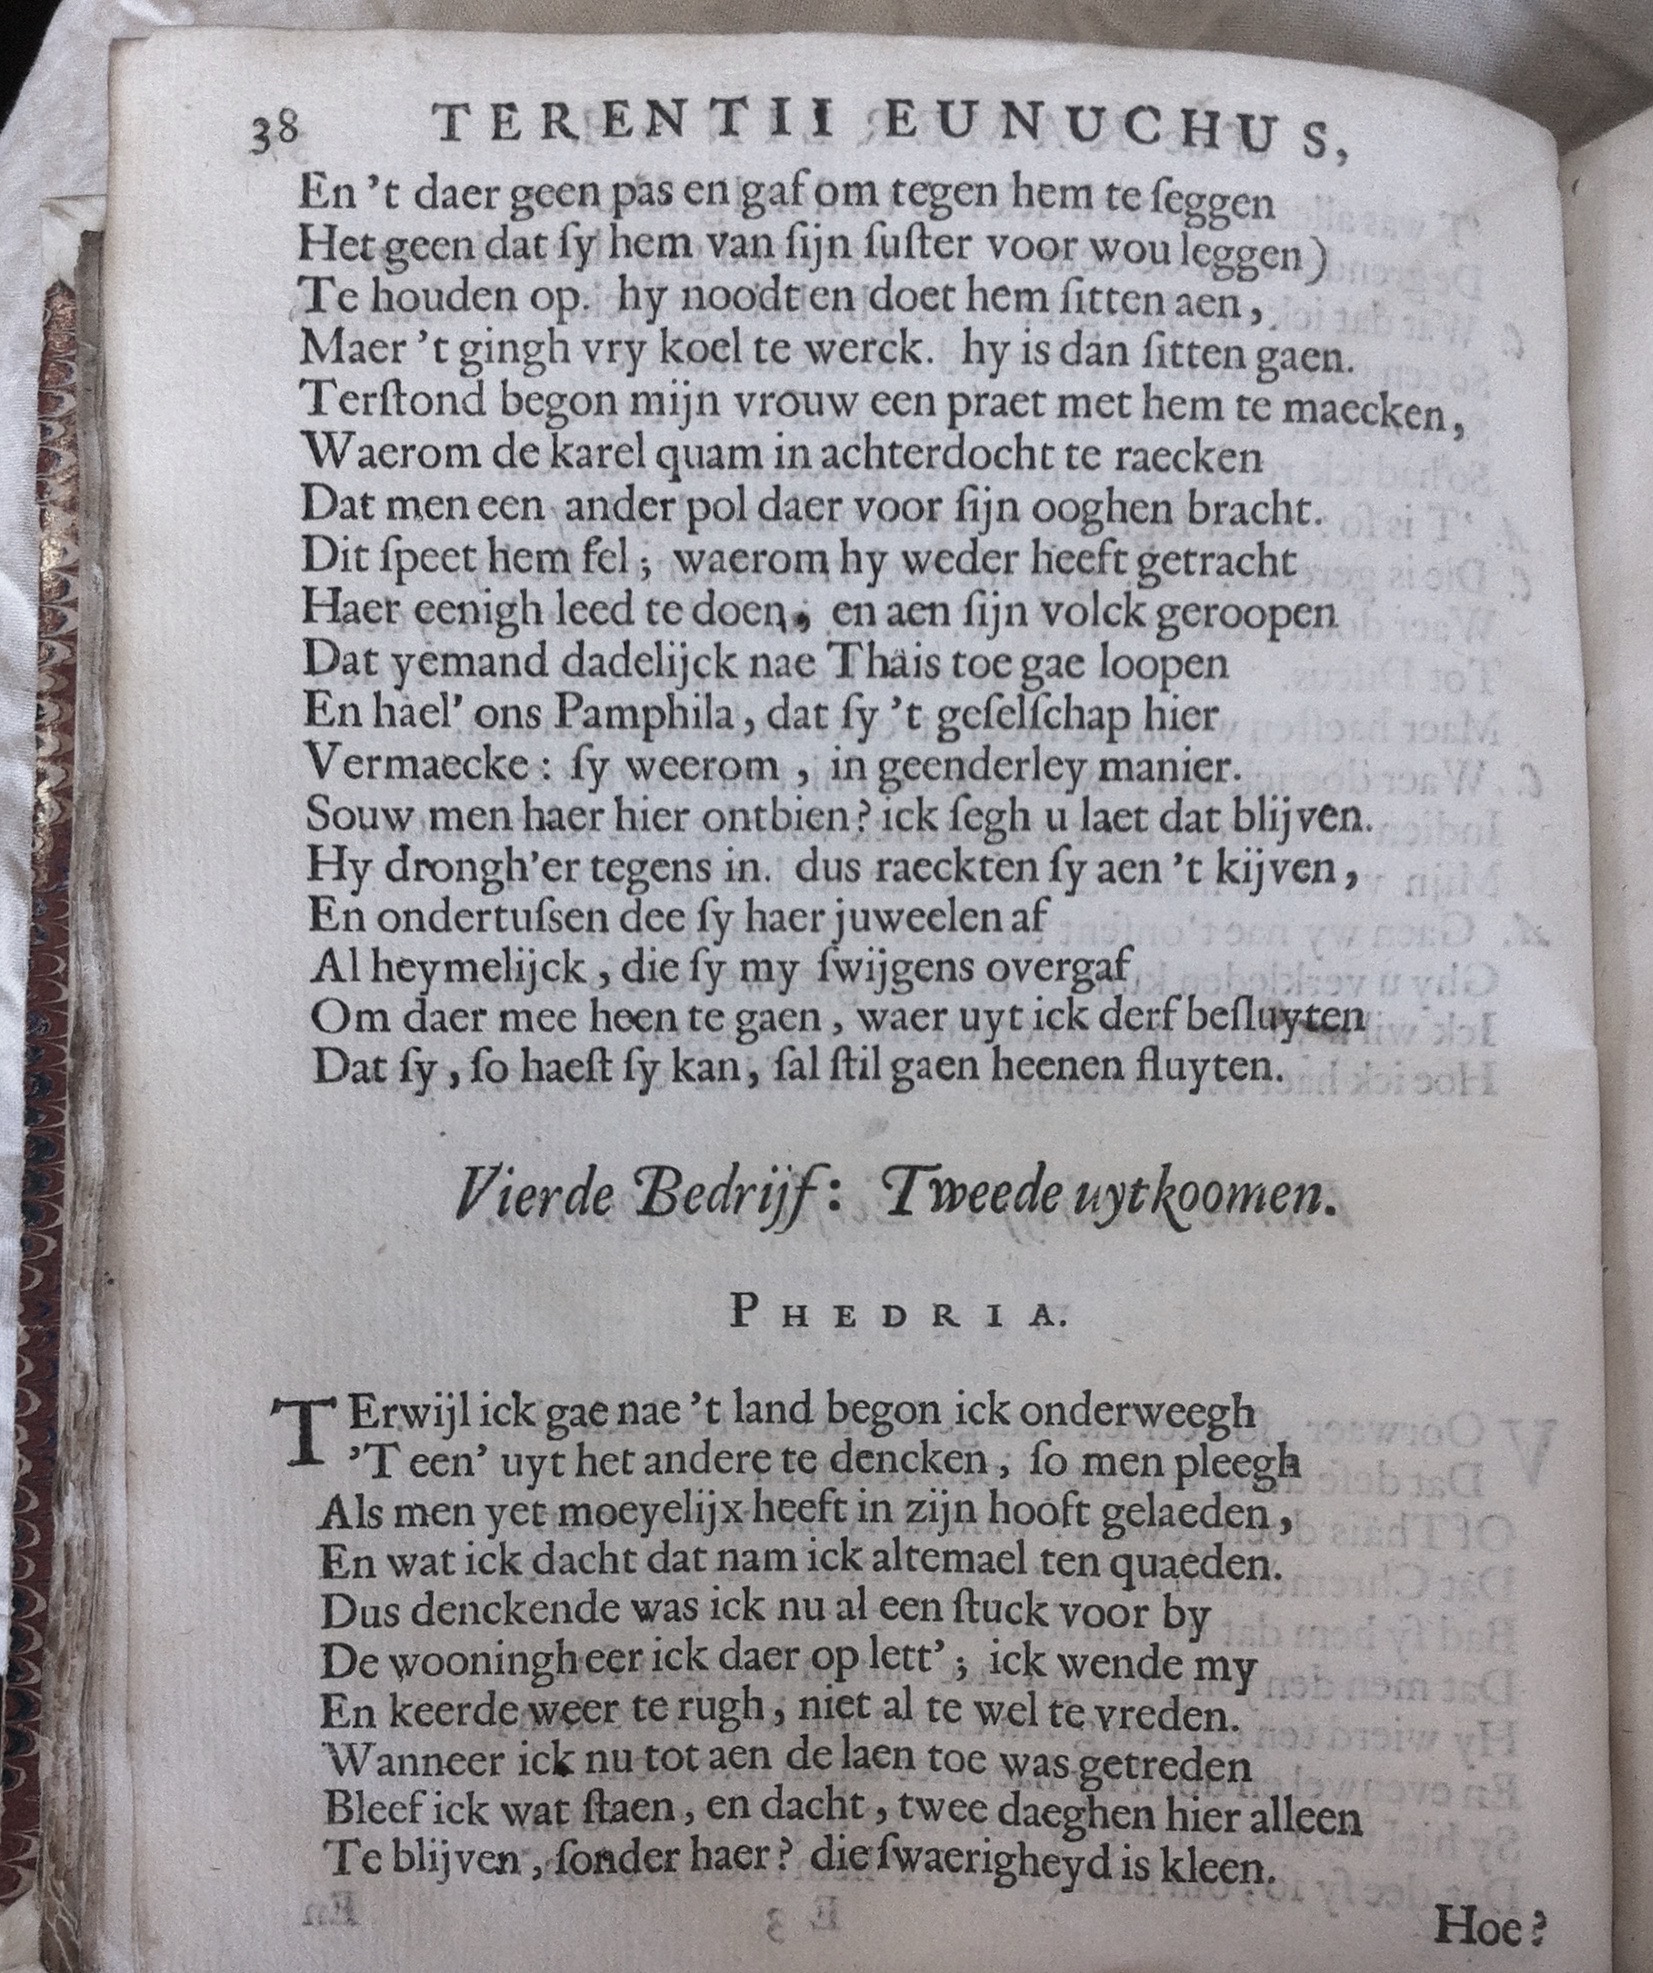 38 TERENTII EUNUCHUS,
En 't daer geen pas en gaf om tegen hem te ſeggen
Het geen dat ſy hem van ſijn ſuſter voor wou leggen)
Te houden op. hy noodt en doet hem ſitten aen,
Maer 't gingh vry koel te werck. hy is dan ſitten gaen.
Terſtond begon mijn vrouw een praet met hem te maecken,
Waerom de karel quam in achterdocht te raecken
Dat men een ander pol daer voor ſijn ooghen bracht.
Dit ſpeet hem fel; waerom hy weder heeft getracht
Haer eenigh leed te doen, en aen ſijn volck geroopen
Dat yemand dadelijck nae Thais toe gae loopen
En hael' ons Pamphila, dat ſy 't geſelſchap hier
Vermaecke: ſy weerom, in geenderley manier.
Souw men haer hier ontbien? ick ſegh u laet dat blijven.
Hy drongh'er tegens in. dus raeckten ſy aen 't kijven,
En ondertuſsen dee ſy haer juweelen af
Al heymelijck, die ſy my ſwijgens overgaf
Om daer mee heen te gaen, waer uyt ick derf beſluyten
Dat ſy, ſo haeſt ſy kan, ſal ſtil gaen heenen fluyten.
Vierde Bedrijf: Tweede uytkoomen.
PHEDRIA.
TErwijl ick gae nae 't land begon ick onderweegh
'T een' uyt het andere te dencken, ſo men pleegh
Als men yet moeyelijx heeft in zijn hooft gelaeden,
En wat ick dacht dat nam ick altemael ten quaeden.
Dus denckende was ick nu al een ſtuck voor by
De wooningh eer ick daer op lett'; ick wende my
En keerde weer te rugh, niet al te wel te vreden.
Wanneer ick nu tot aen de laen toe was getreden
Bleef ick wat ſtaen, en dacht, twee daeghen hier alleen
Te blijven, ſonder haer? die ſwaerigheyd is kleen.
Hoe?